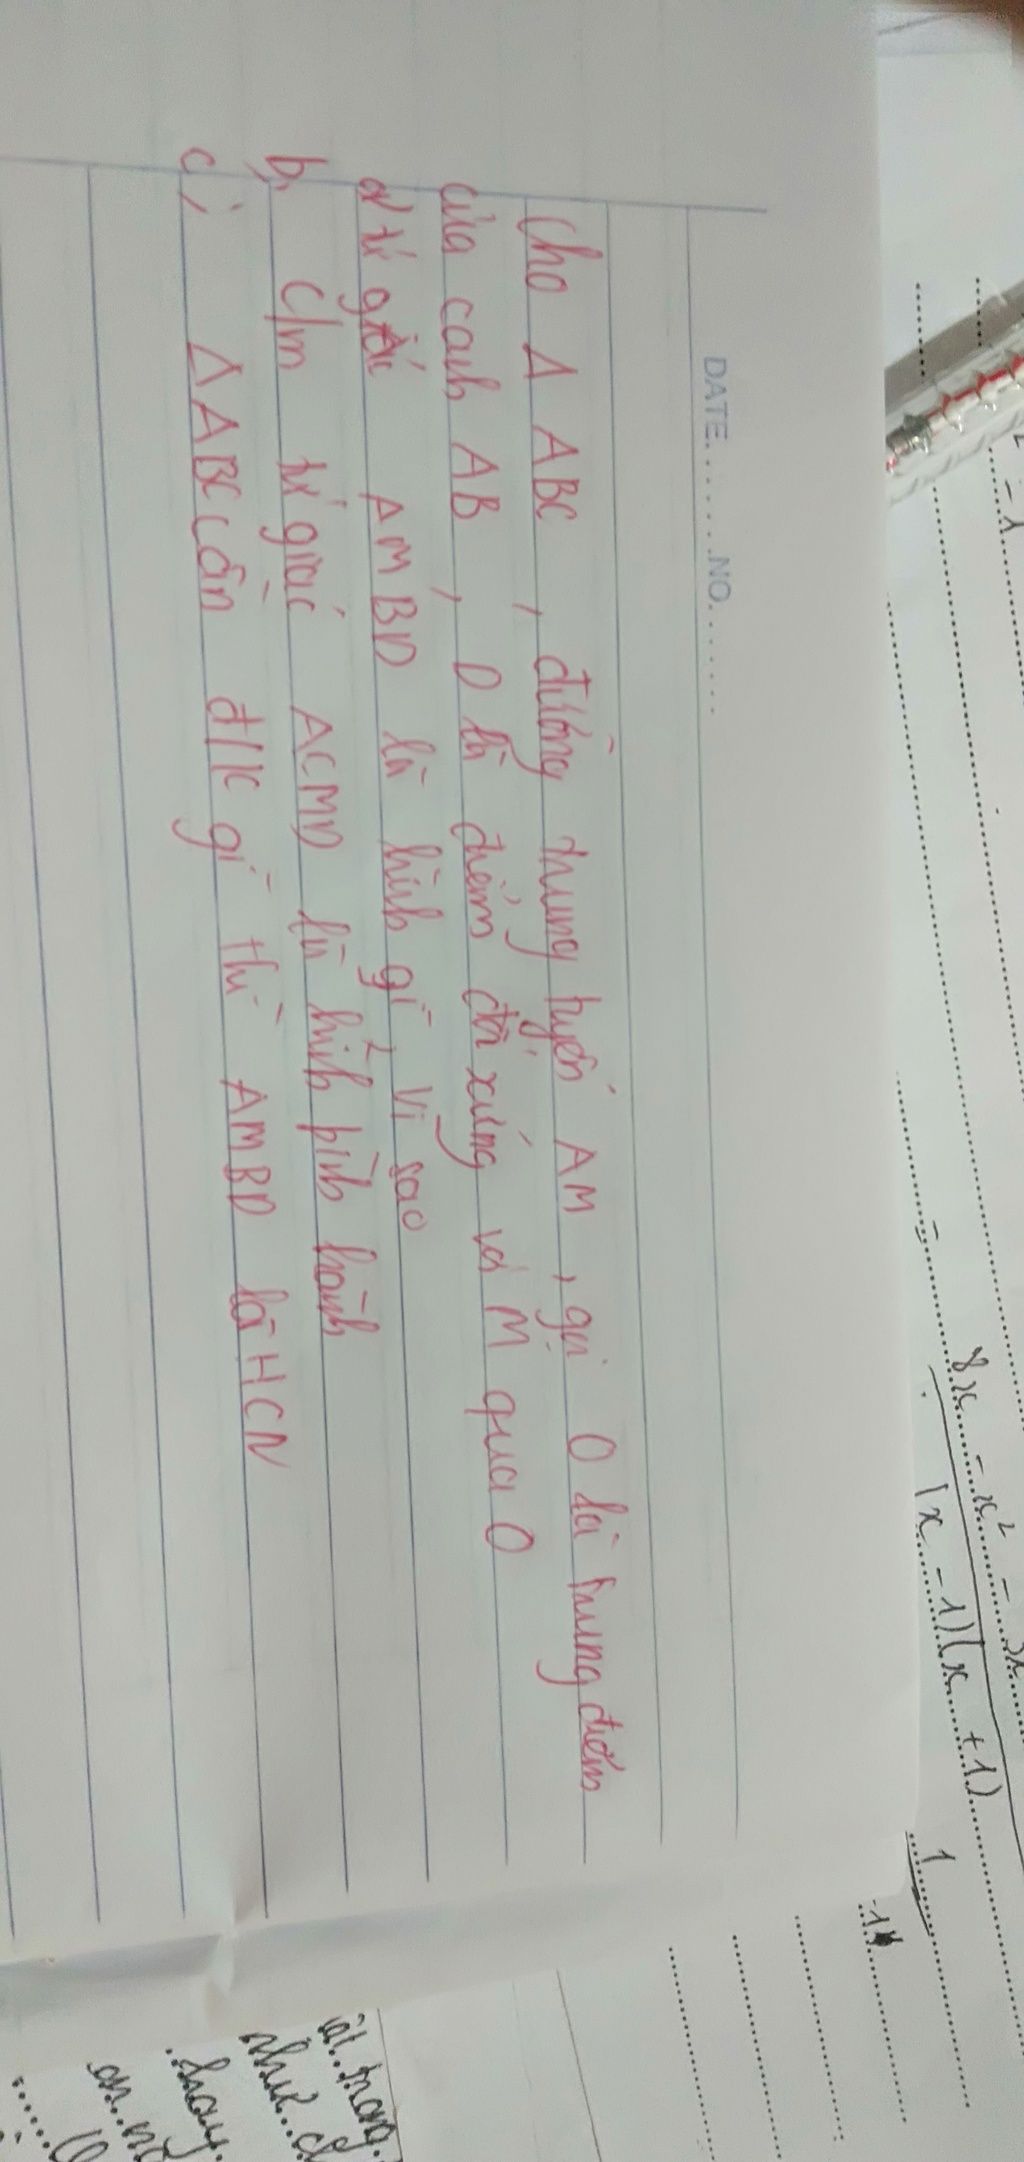 DATE.......NO.......
Cho Δ ABC, đường trung tuyến AM, gọi O là trung điểm
của cạnh AB, D là điểm đối xứng với M qua O
a/ tứ giác AMBD là hình gì, vì sao
b, C/m tứ giác ACMD là hình bình hành
c, ΔABC cần đ/k gì thì AMBD là HCN
8x - x² -
(x - 1)(x + 1)
1
- 1
trong
như